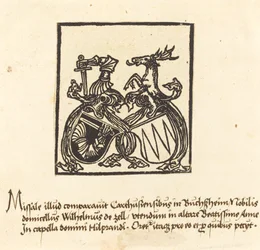 Missale illud comparavit Carthusiensibus in Buchßheim Nobilis
domicellus Wilhelmus de Zell. utendum in altare Beatissime Anne
In capella domini Hilprandi. Oret itaque pro eo et pro quibus petiit.